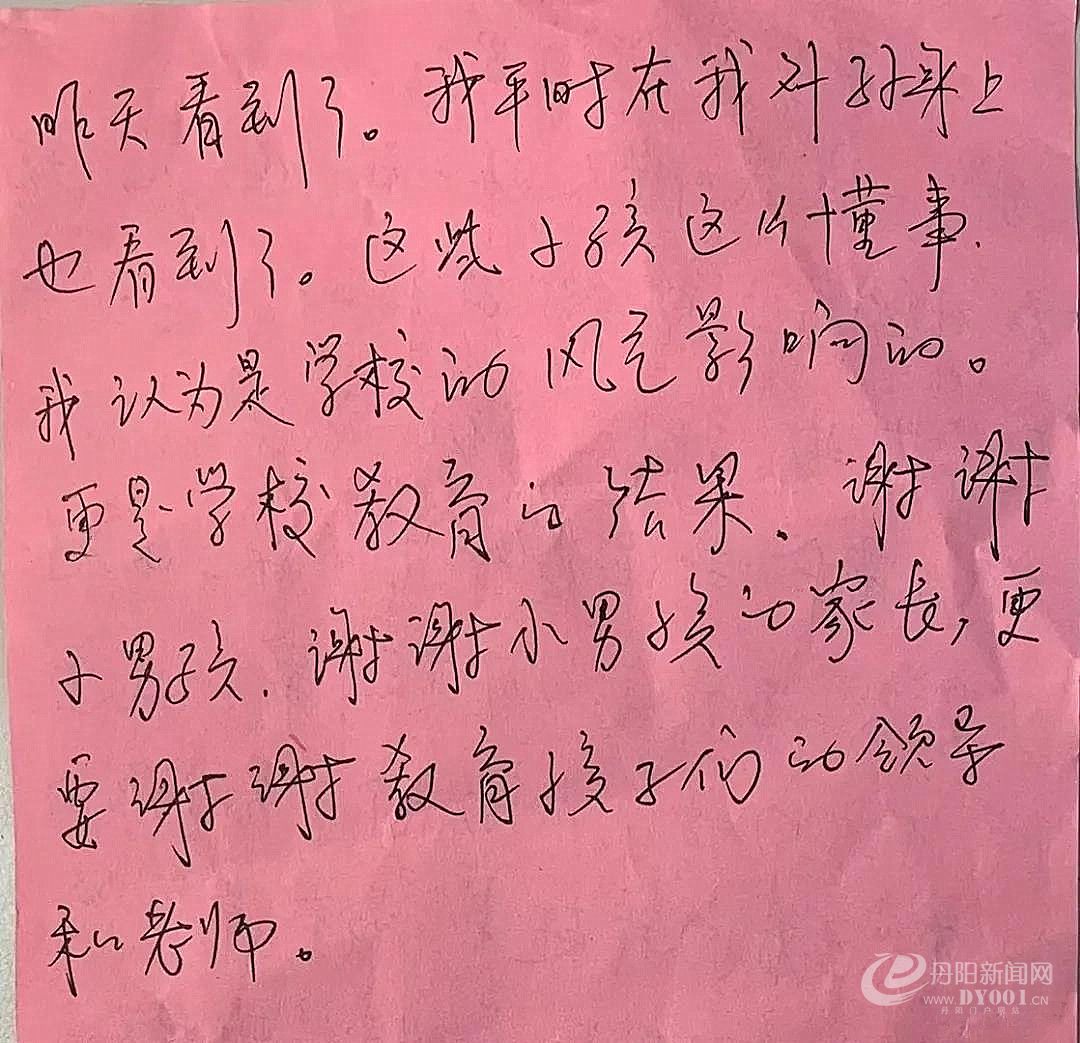 昨天看到了。我平时在我外孙身上
也看到了。这些小孩这么懂事.
我认为是学校的风气影响的。
更是学校教育的结果、谢谢
小男孩.谢谢小男孩的家长,更
要谢谢教育孩子们的领导
和老师。
丹阳新闻网
www.DY001.CN
丹阳门户网站